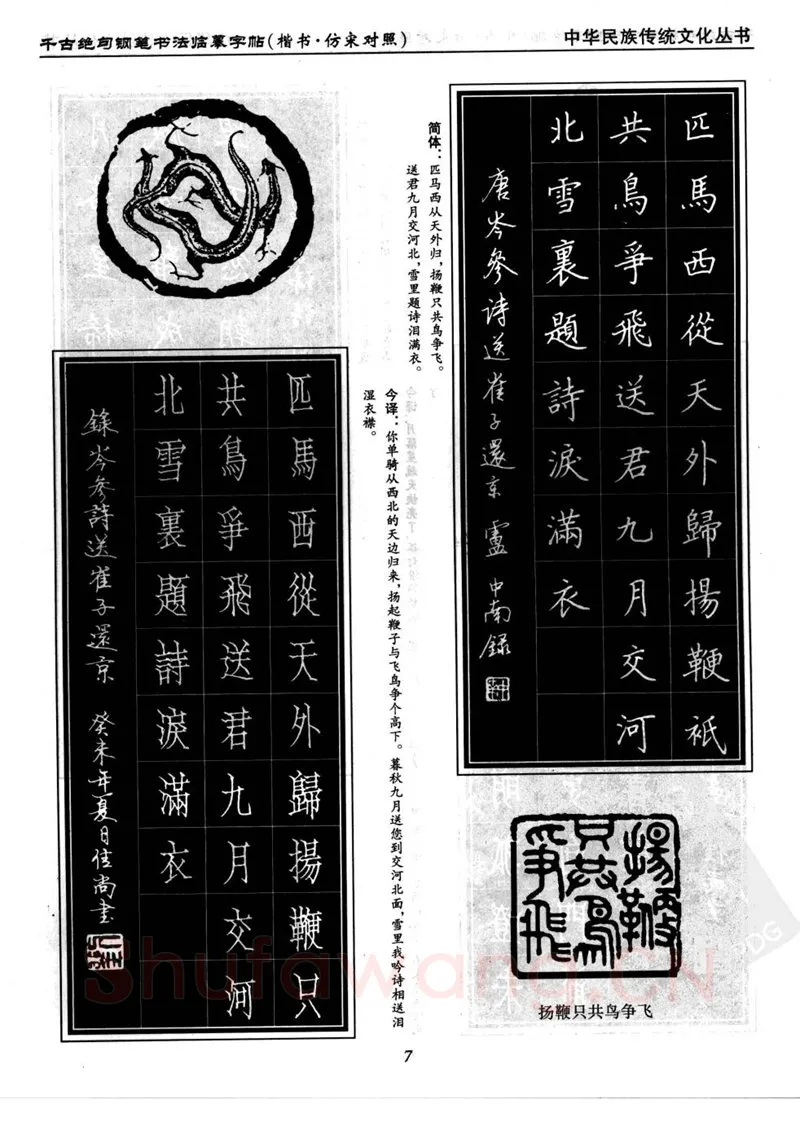 千古绝句钢笔书法临摹字帖(楷书·仿宋对照)
中华民族传统文化丛书
匹馬西從天外歸揚鞭衹
共鳥爭飛送君九月交河
北雪裏題詩淚滿衣
唐岑參诗送崔子還京 盧中南録
简体:匹马西从天外归,扬鞭只共鸟争飞。
送君九月交河北,雪里题诗泪满衣。
今译:你单骑从西北的天边归来,扬起鞭子与飞鸟争个高下。暮秋九月送您到交河北面,雪里我吟诗相送泪
湿衣襟。
匹馬西從天外歸揚鞭只
共鳥爭飛送君九月交河
北雪裏題詩淚滿衣
錄岑參詩送崔子還京 癸未年夏日佳尚書
揚鞭
只共鳥
爭飛
扬鞭只共鸟争飞
7
Shufawang.CN